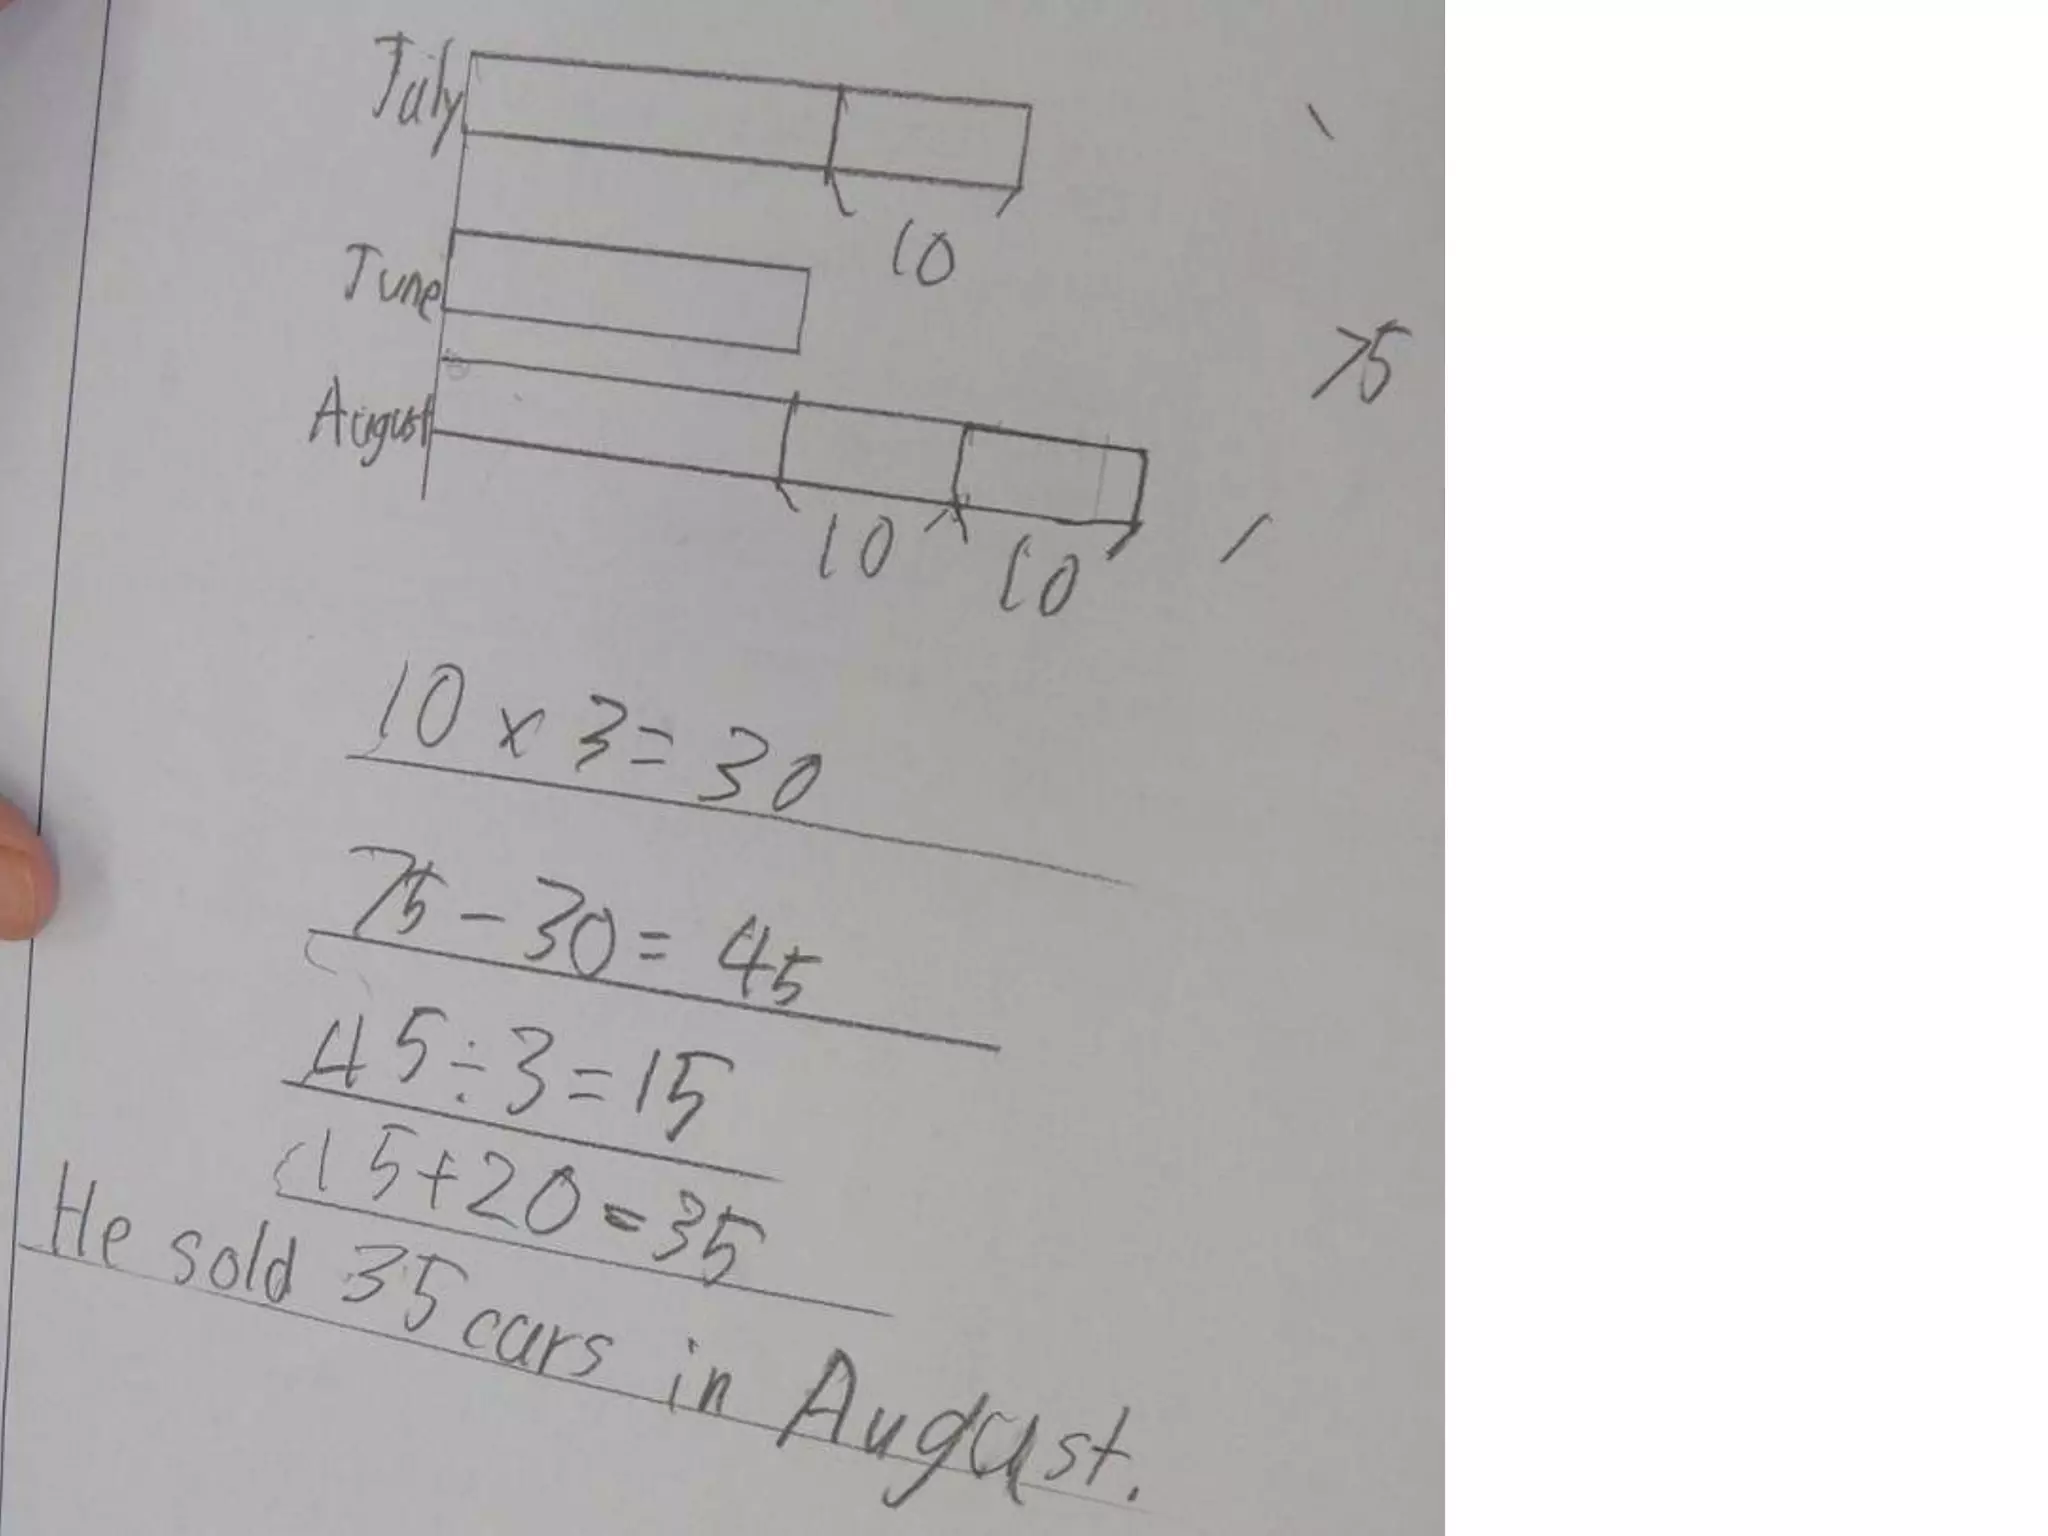 July
10
June
75
August
10 10
10 × 3 = 30
75 - 30 = 45
45 ÷ 3 = 15
15 + 20 = 35
He sold 35 cars in August.